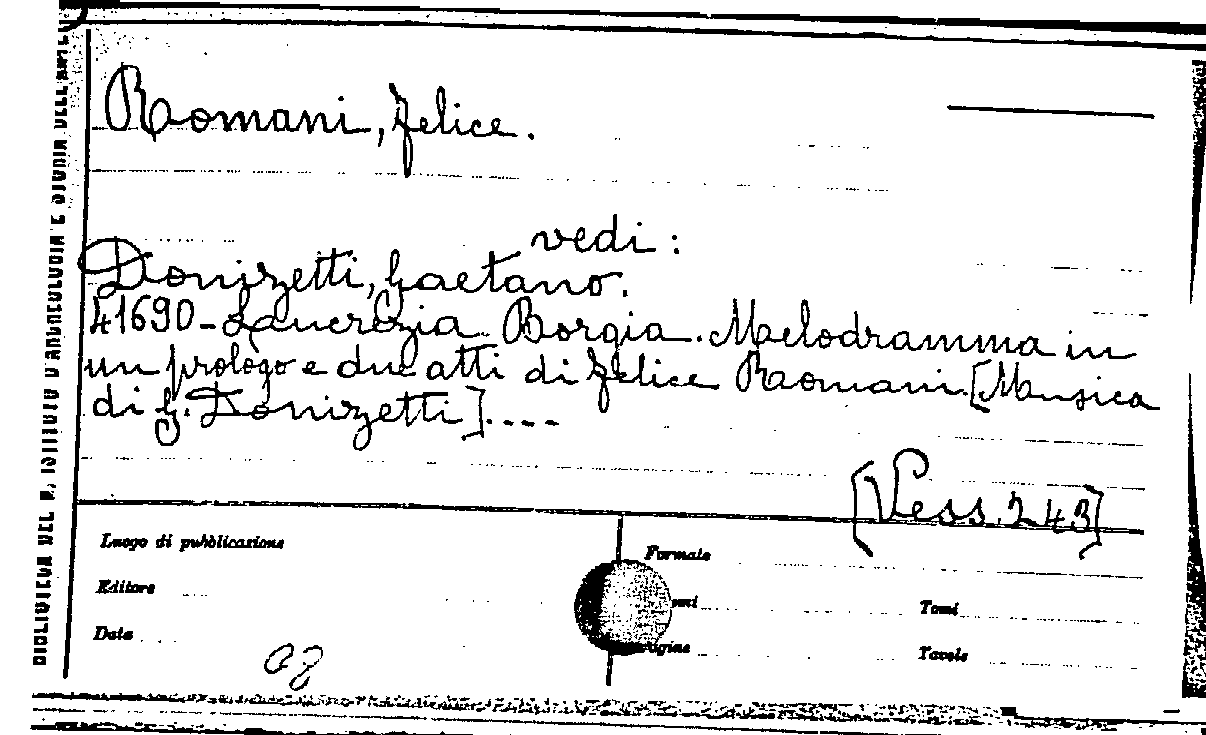 BIBLIOTECA DEL R. ISTITUTO D'ARCHEOLOGIA E STORIA DELL'ARTE
Romani, Felice.
vedi:
Donizetti, Gaetano.
41690 - Laucrezia Borgia. Melodramma in
un prologo e due atti di Felice Romani. [Musica
di G. Donizetti]....
[Vess. 243]
Luogo di pubblicazione
Formato
Editore
Tomi
Data
Tavole